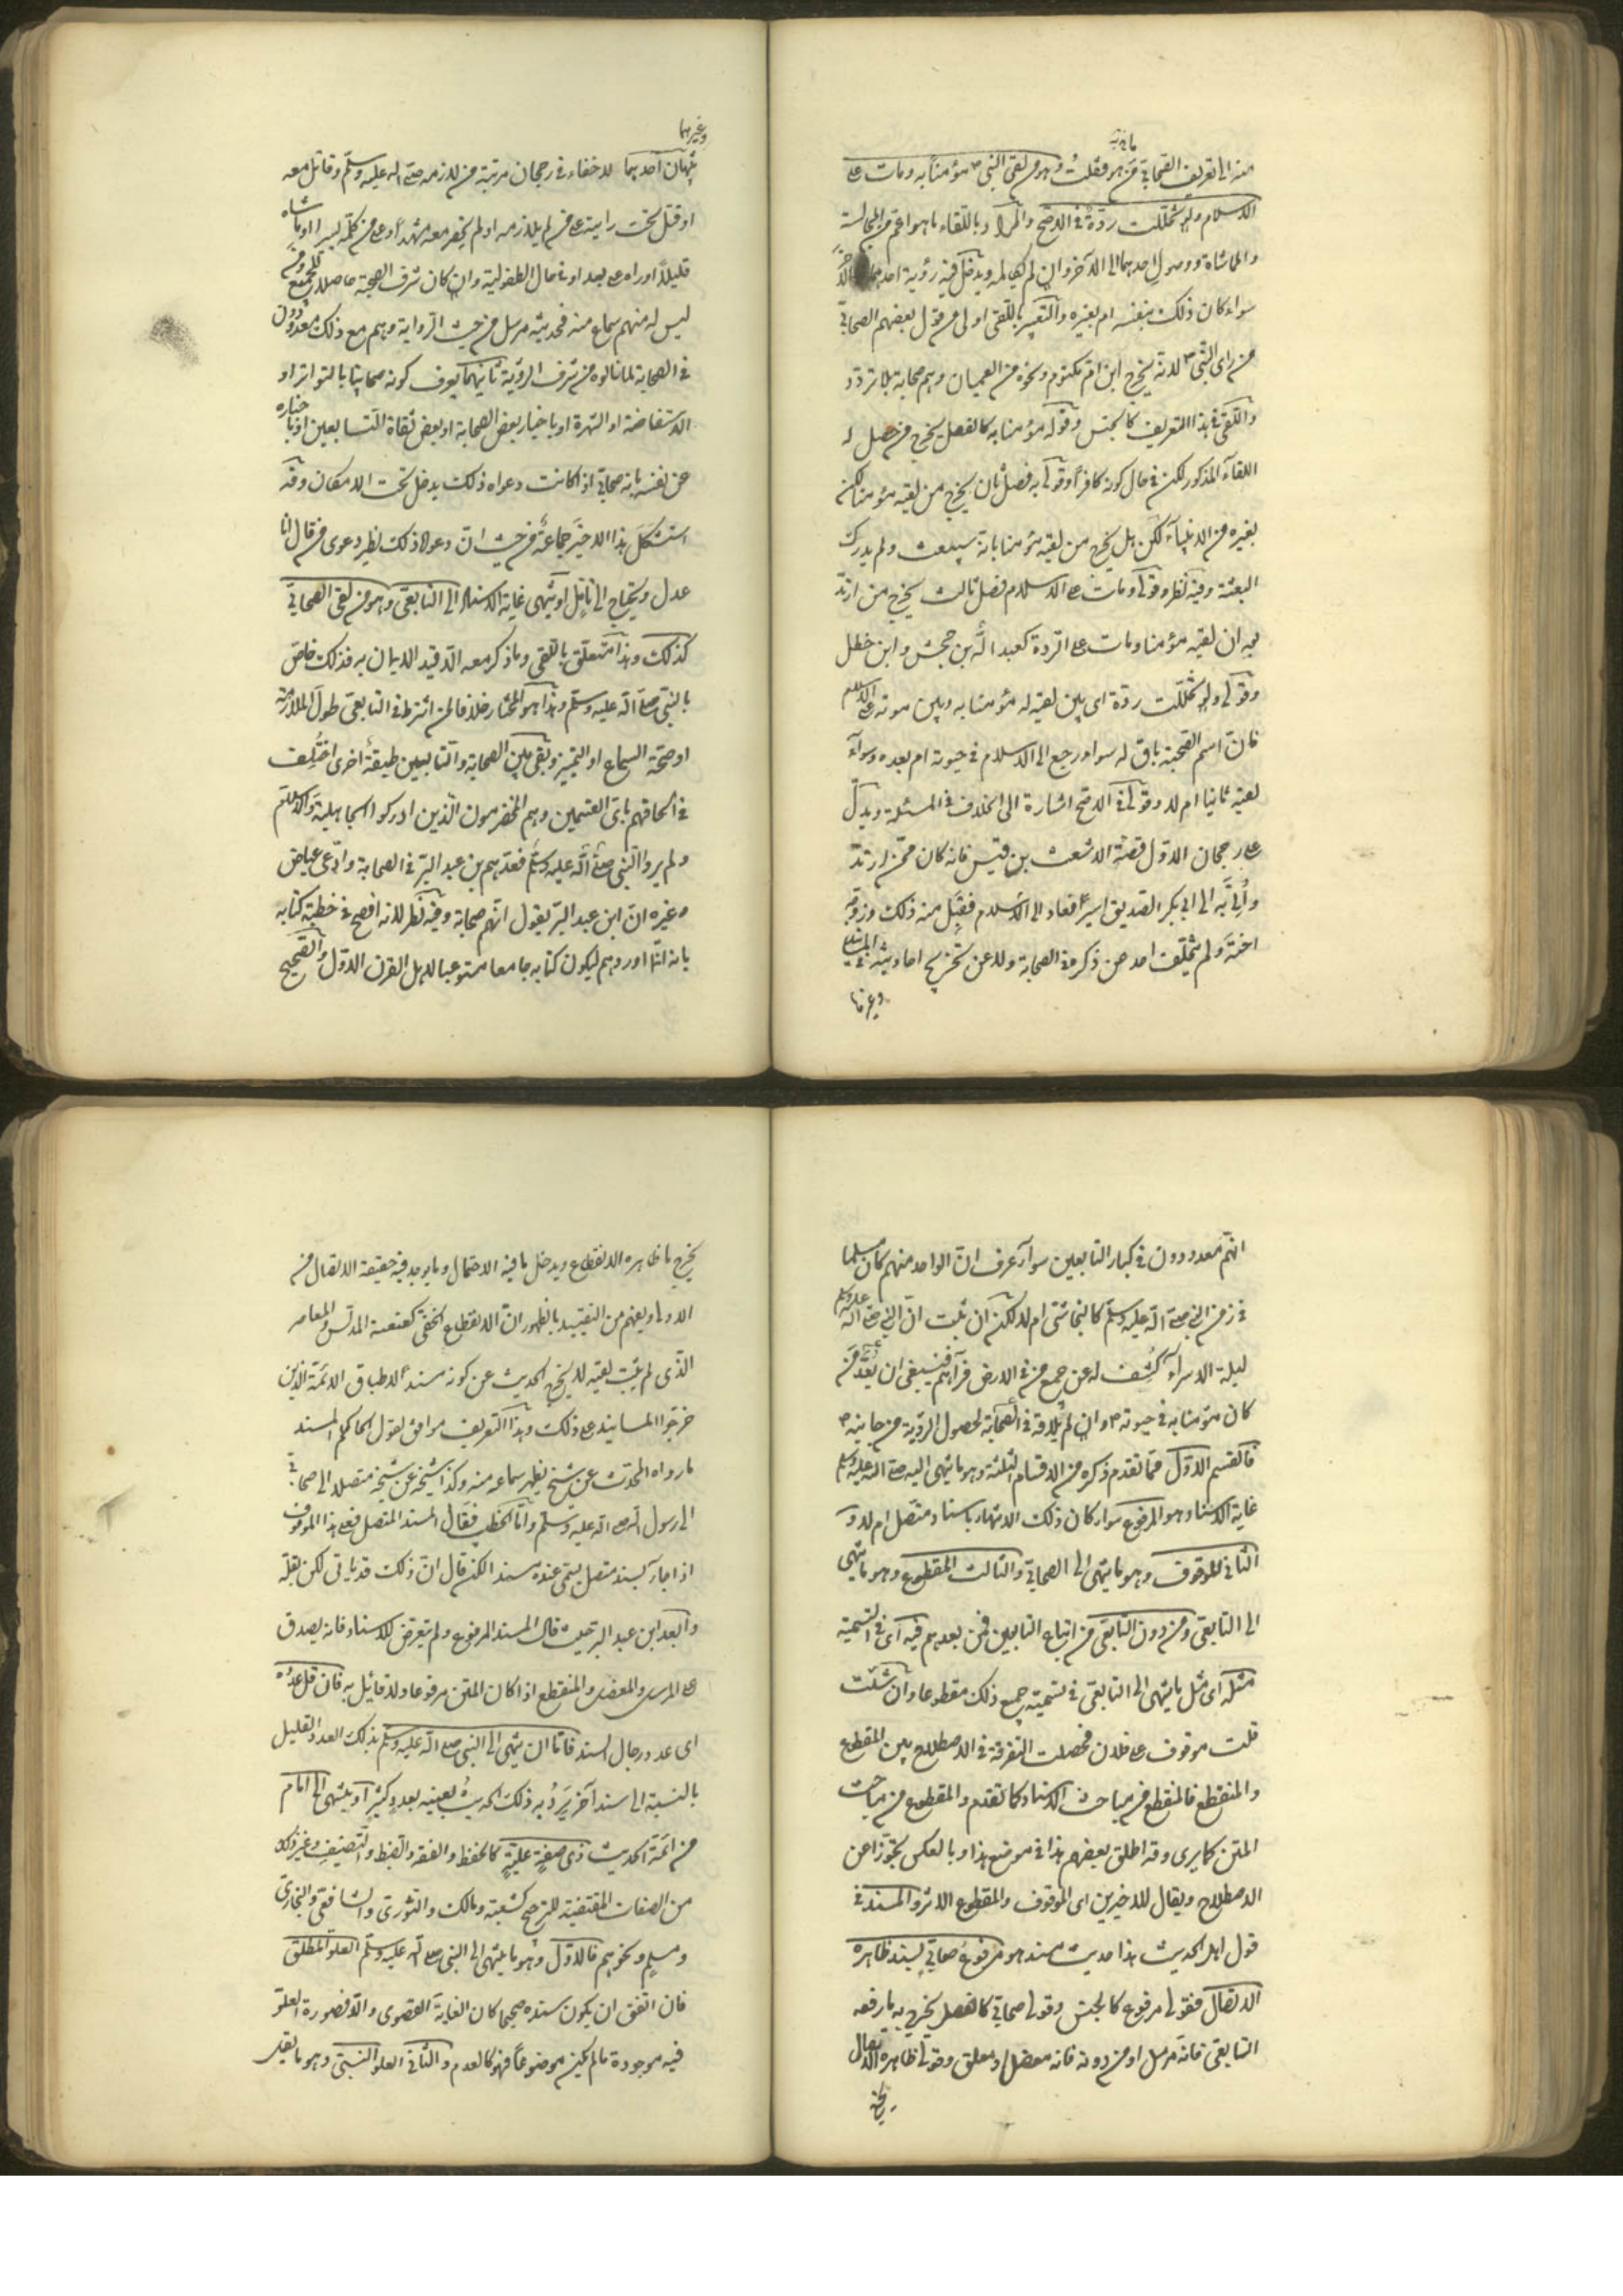 منه الى تعريف الصحابي من هو فقلت وهو من لقي النبي ص مؤمنا به ومات على
الاسلام ولو تخللت ردة في الاصح والمراد باللقاء ما هو اعم من المجالسة
والمماشاة ووصول احدهما الى الآخر وان لم يكالمه ويدخل فيه رؤية احدهما الآخر
سواء كان ذلك بنفسه ام بغيره والتعبير باللقي اولى من قول بعضهم الصحابي
من رأى النبي ص لانه يخرج ابن ام مكتوم ونحوه من العميان وهم صحابة بلا تردد
واللقي في هذا التعريف كالجنس وقوله مؤمنا به كالفصل يخرج من حصل له
اللقاء المذكور لكن في حال كونه كافرا وقولي به فصل ثان يخرج من لقيه مؤمنا لكن
بغيره من الانبياء لكن هل يخرج من لقيه مؤمنا بانه سيبعث ولم يدرك
البعثة وفيه نظر وقولي ومات على الاسلام فصل ثالث يخرج من ارتد
بعد ان لقيه مؤمنا ومات على الردة كعبد الله بن جحش وابن خطل
وقولي ولو تخللت ردة اى بين لقيه له مؤمنا به وبين موته على الاسلام
فان اسم الصحبة باق له سواء رجع الى الاسلام في حيوته ام بعده وسواء
لقيه ثانيا ام لا وقولي في الاصح اشارة الى الخلاف في المسئلة ويدل
على رجحان الاول قصة الاشعث بن قيس فانه كان ممن ارتد
وأتي به الى ابي بكر الصديق اسيرا فعاد الى الاسلام فقبل منه ذلك وزوجه
اخته ولم يتخلف احد عن ذكره في الصحابة ولا عن تخريج احاديثه في المسانيد
وغيرها
وغيرهما
تنبيهان احدهما لا خفاء في رجحان مرتبة من لازمه صلى الله عليه وسلم وقاتل معه
او قتل تحت رايته على من لم يلازمه او لم يحضر معه مشهدا وعلى من كلمه يسيرا او ماشاه
قليلا او راه على بعد او في حال الطفولية وان كان شرف الصحبة حاصلا للجميع ومن
ليس له منهم سماع منه فحديثه مرسل من حيث الرواية وهم مع ذلك معدودون
في الصحابة لما نالوه من شرف الرؤية ثانيهما يعرف كونه صحابيا بالتواتر او
الاستفاضة او الشهرة او باخبار بعض الصحابة او بعض ثقاة التابعين او باخباره
عن نفسه بانه صحابي اذا كانت دعواه ذلك يدخل تحت الامكان وقد
استشكل هذا الاخير جماعة من حيث ان دعواه ذلك نظير دعوى من قال انا
عدل ويحتاج الى تامل او ينتهي غاية الاسناد الى التابعي وهو من لقي الصحابي
كذلك وهذا متعلق باللقي وما ذكر معه الا قيد الايمان به فذلك خاص
بالنبي صلى الله عليه وسلم وهذا هو المختار خلافا لمن اشترط في التابعي طول الملازمة
او صحة السماع او التمييز وبقي بين الصحابة والتابعين طبقة أخرى اختُلف
في الحاقهم باى القسمين وهم المخضرمون الذين ادركوا الجاهلية والاسلام
ولم يروا النبي صلى الله عليه وسلم فعدهم بن عبد البر في الصحابة وادعى عياض
وغيره ان ابن عبد البر يقول انهم صحابة وفيه نظر لانه افصح في خطبة كتابه
بانه انما اوردهم ليكون كتابه جامعا مستوعبا لاهل القرن الاول والصحيح
انهم معدودون في كبار التابعين سواء عرف ان الواحد منهم كان مسلما
في زمن النبي صلى الله عليه وسلم كالنجاشي ام لا لكن ان ثبت ان النبي صلى الله عليه وسلم
ليلة الاسراء كُشف له عن جميع من في الارض فرآهم فينبغي ان يعد من
كان مؤمنا به في حيوته ص وان لم يلاقه في الصحابة لحصول الرؤية من جانبه ص
فالقسم الاول مما تقدم ذكره من الاقسام الثلثة وهو ما ينتهي اليه صلى الله عليه وسلم
غاية الاسناد هو المرفوع سواء كان ذلك الانتهاء باسناد متصل ام لا و
الثاني الموقوف وهو ما ينتهي الى الصحابي والثالث المقطوع وهو ما ينتهي
الى التابعي ومن دون التابعي من اتباع التابعين فمن بعدهم فيه اى في التسمية
مثله اى مثل ما ينتهي الى التابعي في تسميته جميع ذلك مقطوعا وان شئت
قلت موقوف على فلان فحصلت التفرقة في الاصطلاح بين المقطوع
والمنقطع فالمنقطع من مباحث الاسناد كما تقدم والمقطوع من مباحث
المتن كما يرى وقد اطلق بعضهم هذا في موضع هذا وبالعكس تجوزا عن
الاصطلاح ويقال للاخيرين اى الموقوف والمقطوع الاثر والمسند في
قول اهل الحديث هذا حديث مسند هو مرفوع صحابي بسند ظاهره
الاتصال فقولي مرفوع كالجنس وقولي صحابي كالفصل يخرج به ما رفعه
التابعي فانه مرسل او من دونه فانه معضل او معلق وقولي ظاهره الاتصال
يخرج
يخرج ما ظاهره الانقطاع ويدخل ما فيه الاحتمال وما يوجد فيه حقيقة الاتصال من
الاولى ويفهم من التقييد بالظهور ان الانقطاع الخفي كعنعنة المدلس والمعاصر
الذى لم يثبت لقيه لا يخرج الحديث عن كونه مسندا لاطباق الائمة الذين
خرجوا المسانيد على ذلك وهذا التعريف موافق لقول الحاكم المسند
ما رواه المحدث عن شيخ يظهر سماعه منه وكذا شيخه عن شيخه متصلا الى صحابي
الى رسول الله صلى الله عليه وسلم واما الخطيب فقال المسند المتصل فعلى هذا الموقوف
اذا جاء بسند متصل يسمى عنده مسندا لكن قال ان ذلك قد ياتي لكن بقلة
وابعد ابن عبد البر حيث قال المسند المرفوع ولم يتعرض للاسناد فانه يصدق
على المرسل والمعضل والمنقطع اذا كان المتن مرفوعا ولا قائل به فان قل عدده
اى عدد رجال السند فاما ان ينتهي الى النبي صلى الله عليه وسلم بذلك العدد القليل
بالنسبة الى سند آخر يَرِدُ به ذلك الحديث بعينه بعدد كثير او ينتهي الى امام
من ائمة الحديث ذى صفةٍ عليّةٍ كالحفظ والفقه والضبط والتصنيف وغير ذلك
من الصفات المقتضية للترجيح كشعبة ومالك والثورى والشافعي والبخارى
ومسلم ونحوهم فالاول وهو ما ينتهي الى النبي صلى الله عليه وسلم العلو المطلق
فان اتفق ان يكون سنده صحيحا كان الغاية القصوى والا فصورة العلو
فيه موجودة ما لم يكن موضوعا فهو كالعدم والثاني العلو النسبي وهو ما يقل